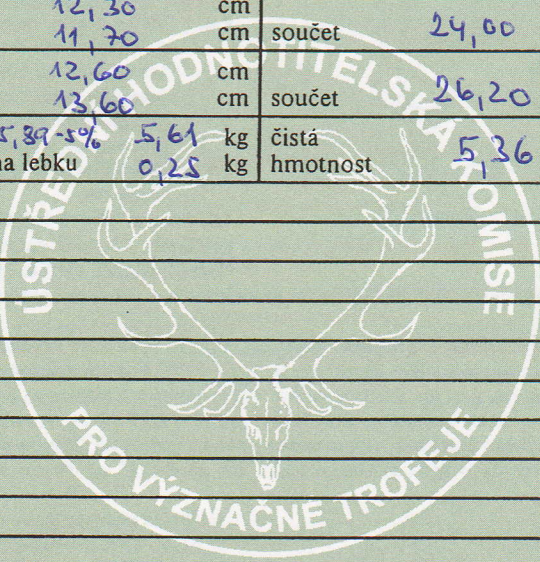 12,30 cm
11,70 cm součet 24,00
12,60 cm
13,60 cm součet 26,20
5,89-5% 5,61 kg čistá
na lebku 0,25 kg hmotnost 5,36
ÚSTŘEDNÍ HODNOTITELSKÁ KOMISE
PRO VÝZNAČNÉ TROFEJE